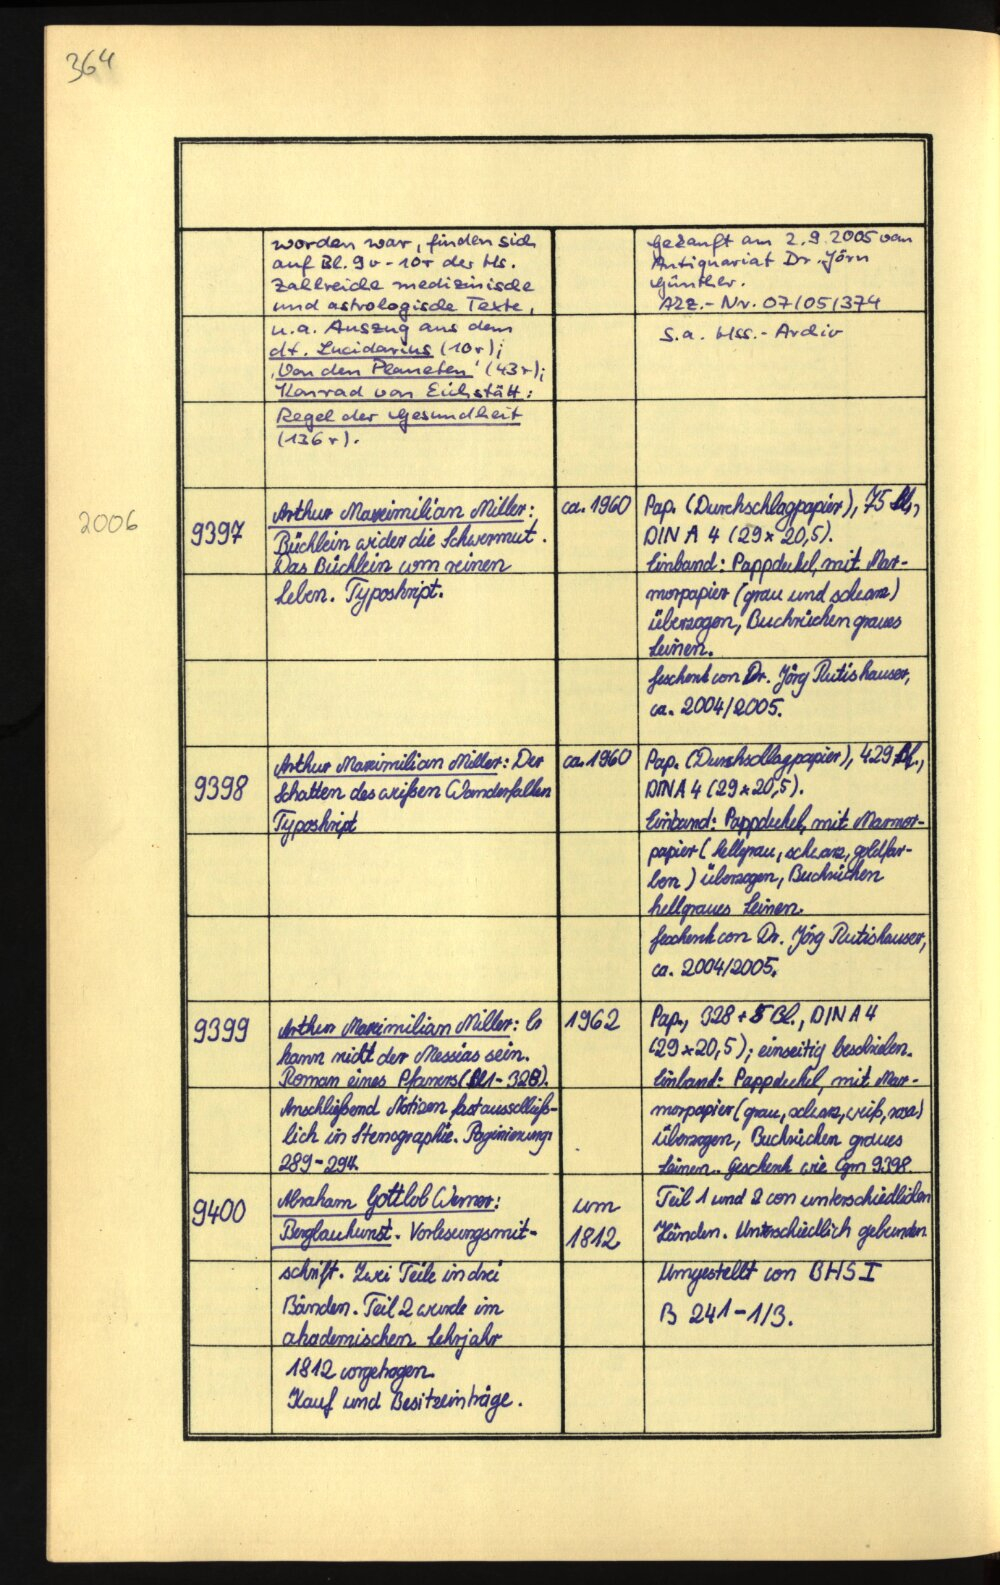 364
worden war, finden sich
auf Bl. 9v - 10r der Hs.
zahlreiche medizinische
und astrologische Texte,
u.a. Auszug aus dem
dt. Lucidarius (10r);
'Von den Planeten' (43r);
Konrad von Eichstätt:
Regel der Gesundheit
(136r).
Gekauft am 2.9.2005 von
Antiquariat Dr. Jörn
Günther.
Akz.-Nr. 07/05/374
S.a. Hss.-Archiv
2006
9397
Arthur Maximilian Miller:
Büchlein wider die Schwermut.
Das Büchlein vom reinen
Leben. Typoskript.
ca. 1960
Pap. (Durchschlagpapier), 75 Bl.,
DIN A 4 (29 x 20,5).
Einband: Pappdeckel, mit Mar-
morpapier (grau und schwarz)
überzogen, Buchrücken graues
Leinen.
Geschenk von Dr. Jörg Rutishauser,
ca. 2004/2005.
9398
Arthur Maximilian Miller: Der
Schatten des weißen Wanderfalken
Typoskript
ca. 1960
Pap. (Durchschlagpapier), 429 Bl.,
DIN A 4 (29 x 20,5).
Einband: Pappdeckel, mit Marmor-
papier (hellgrau, schwarz, goldfar-
ben) überzogen, Buchrücken
hellgraues Leinen.
Geschenk von Dr. Jörg Rutishauser,
ca. 2004/2005.
9399
Arthur Maximilian Miller: Er
kann nicht der Messias sein.
Roman eines Pfarrers (Bl 1 - 328).
Anschließend Notizen fast ausschließ-
lich in Stenographie. Paginierung:
289 - 294.
1962
Pap., 328 + 5 Bl., DIN A 4
(29 x 20,5); einseitig beschrieben.
Einband: Pappdeckel, mit Mar-
morpapier (grau, schwarz, weiß, rosa)
überzogen, Buchrücken graues
Leinen. Geschenk wie Cgm 9398.
9400
Abraham Gottlob Werner:
Bergbaukunst. Vorlesungsmit-
schrift. Zwei Teile in drei
Bänden. Teil 2 wurde im
akademischen Lehrjahr
1812 vorgetragen.
Kauf und Besitzeinträge.
um
1812
Teil 1 und 2 von unterschiedlichen
Händen. Unterschiedlich gebunden
Umgestellt von BHS I
B 241-1/3.